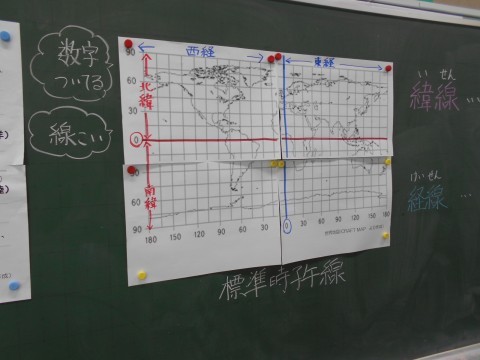 数字
ついてる
線こい
西経
東経
北緯
南緯
90
60
30
0
30
60
90
180
150
120
90
60
30
0
30
60
90
120
150
180
いせん
緯線…
けいせん
経線…
標準時子午線